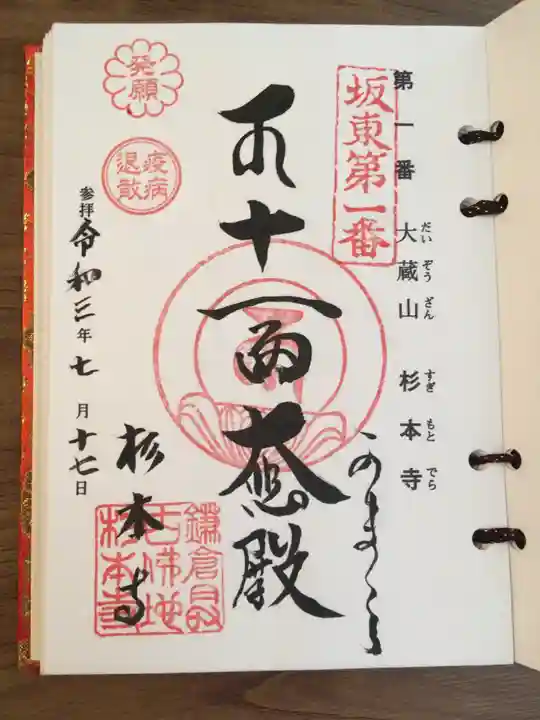 第一番 大蔵山 杉本寺
だい ぞう ざん すぎ もと でら
坂東第一番
十一面大悲殿
発願
疫病退散
参拝 令和三年七月十七日
杉本寺
鎌倉最
古佛地
杉本寺